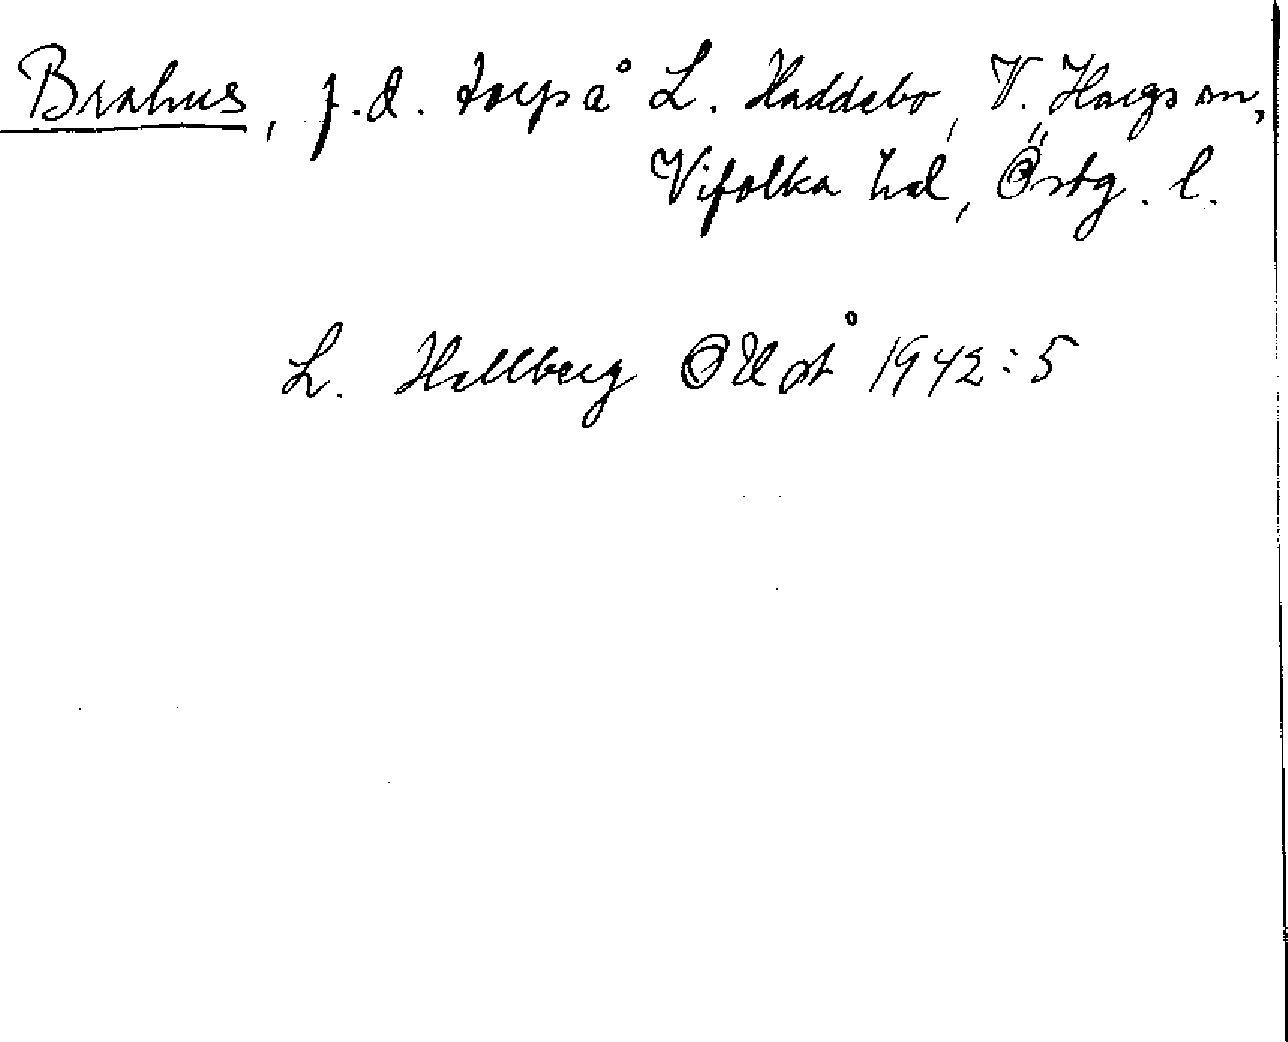 Brahus, f.d. torp å L. Haddebo, V. Harg sn,
Vifolka hd, Östg. l.
L. Hallberg OUÅ 1942:5